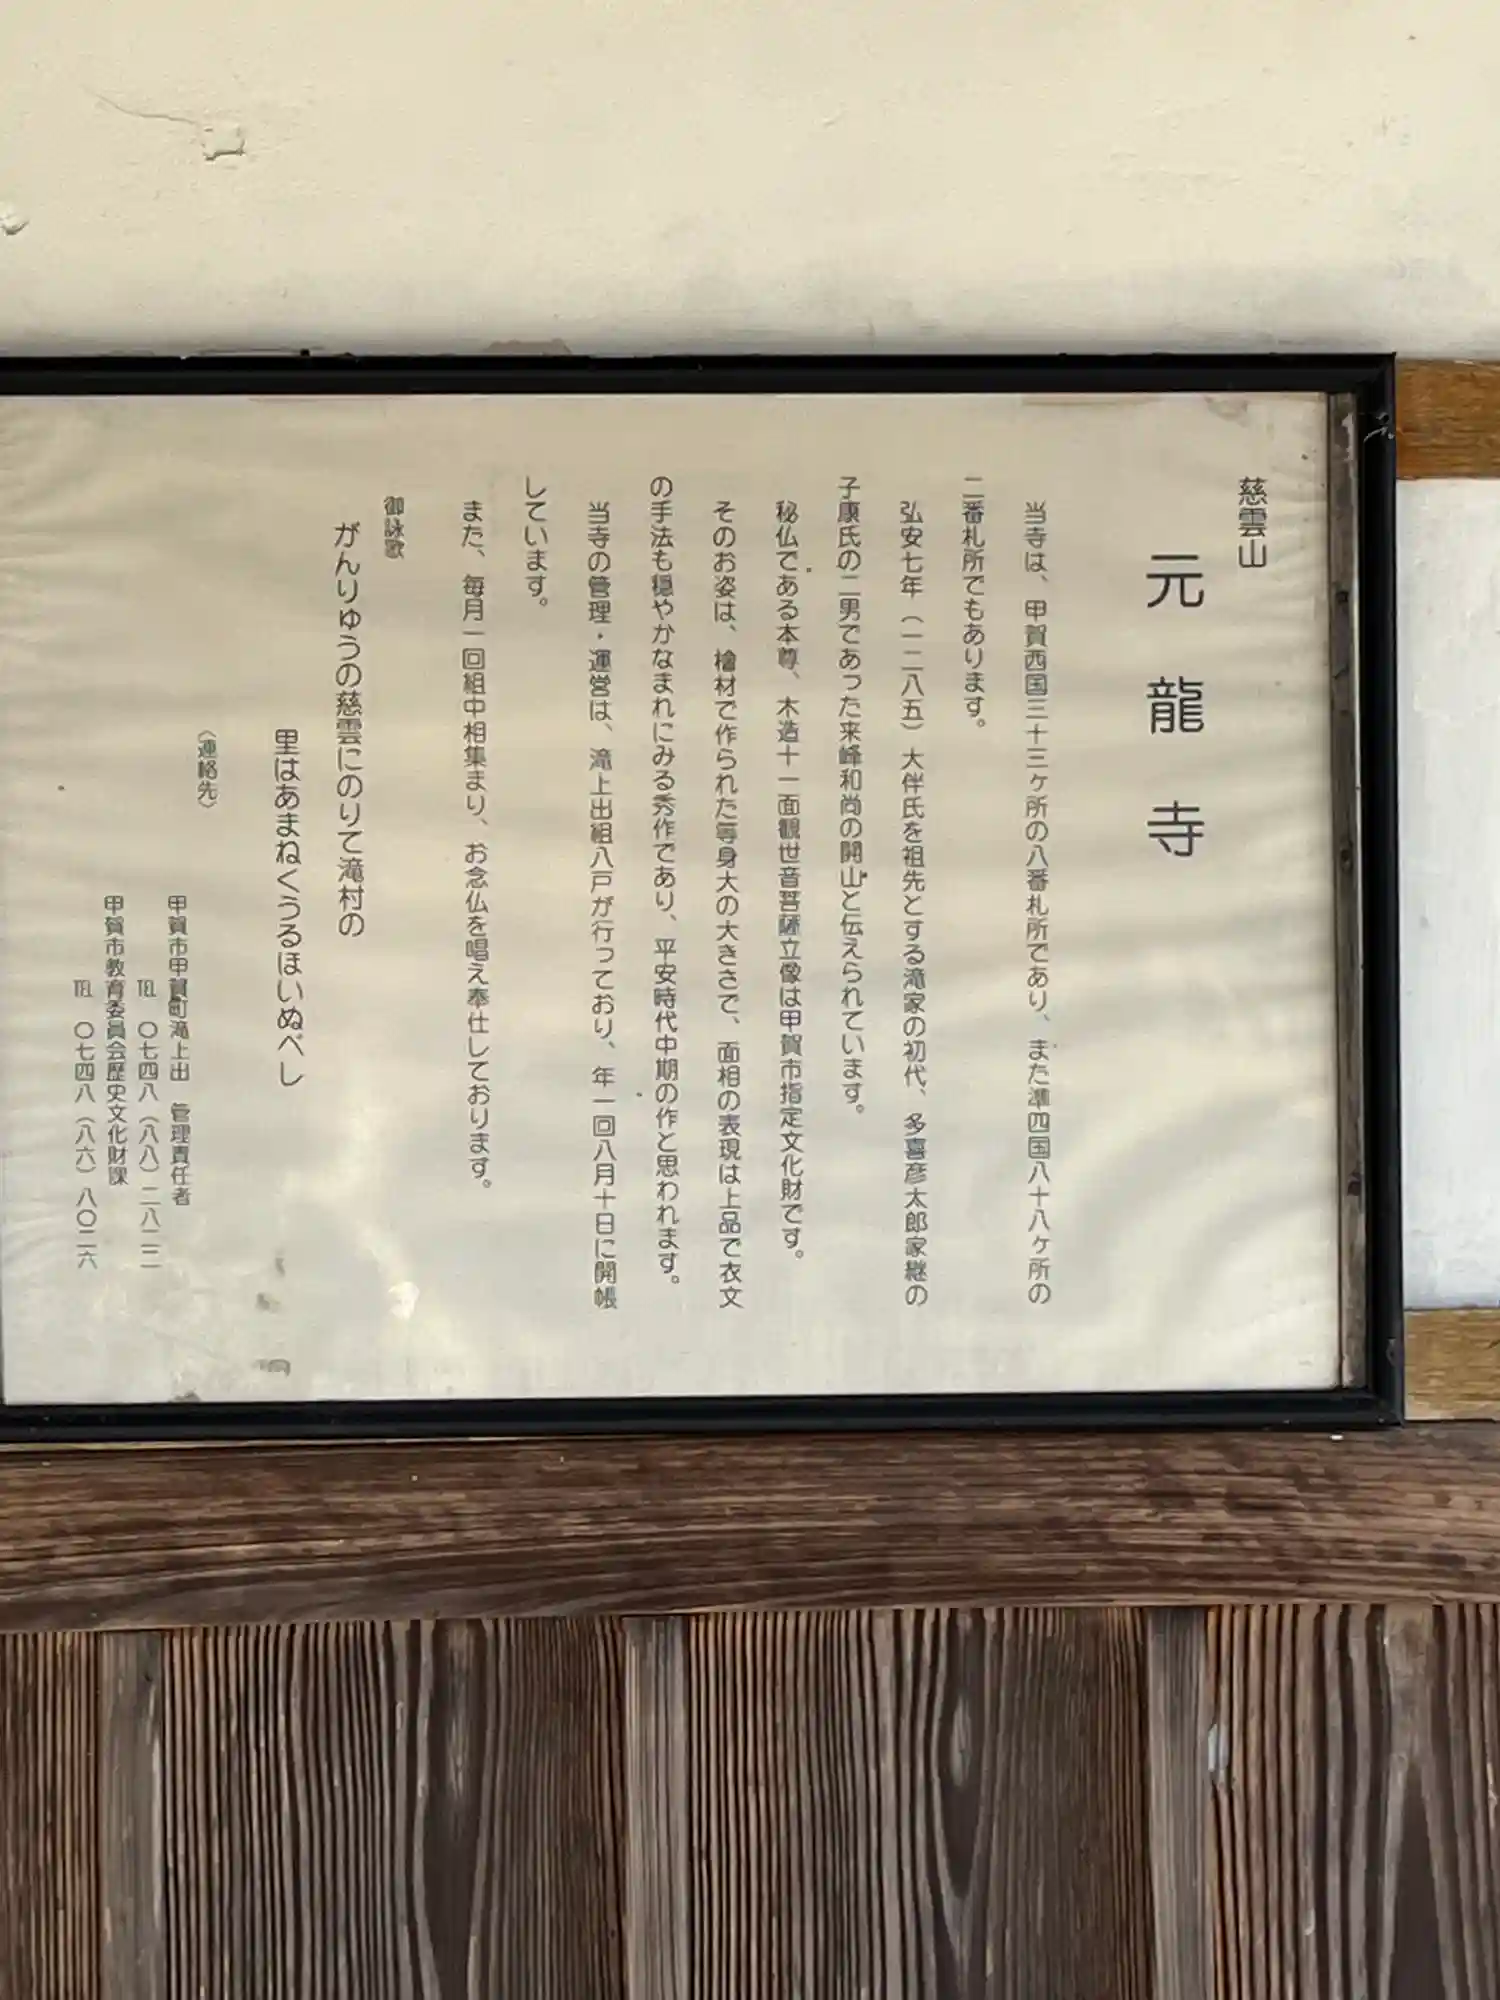 慈雲山
元龍寺
当寺は、甲賀西国三十三ヶ所の八番札所であり、また準四国八十八ヶ所の
二番札所でもあります。
弘安七年（一二八五）大伴氏を祖先とする滝家の初代、多喜彦太郎家継の
子康氏の二男であった来峰和尚の開山と伝えられています。
秘仏である本尊、木造十一面観世音菩薩立像は甲賀市指定文化財です。
そのお姿は、檜材で作られた等身大の大きさで、面相の表現は上品で衣文
の手法も穏やかなまれにみる秀作であり、平安時代中期の作と思われます。
当寺の管理・運営は、滝上出組八戸が行っており、年一回八月十日に開帳
しています。
また、毎月一回組中相集まり、お念仏を唱え奉仕しております。
御詠歌
がんりゅうの慈雲にのりて滝村の
里はあまねくうるほいぬべし
〈連絡先〉
甲賀市甲賀町滝上出　管理責任者
℡　〇七四八（八八）二八二二
甲賀市教育委員会歴史文化財課
℡　〇七四八（八六）八〇二六